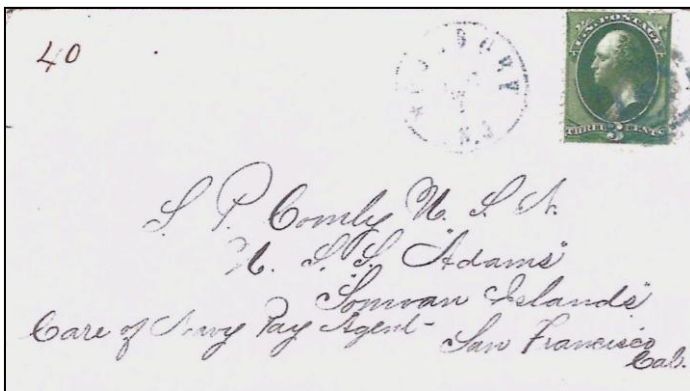 40
U.S. POSTAGE
THREE 3 CENTS
N.J.
S. P. Comly U. S. N.
U. S. S. "Adams"
"Somoan Islands"
Care of Navy Pay Agent-
San Francisco
Cal.